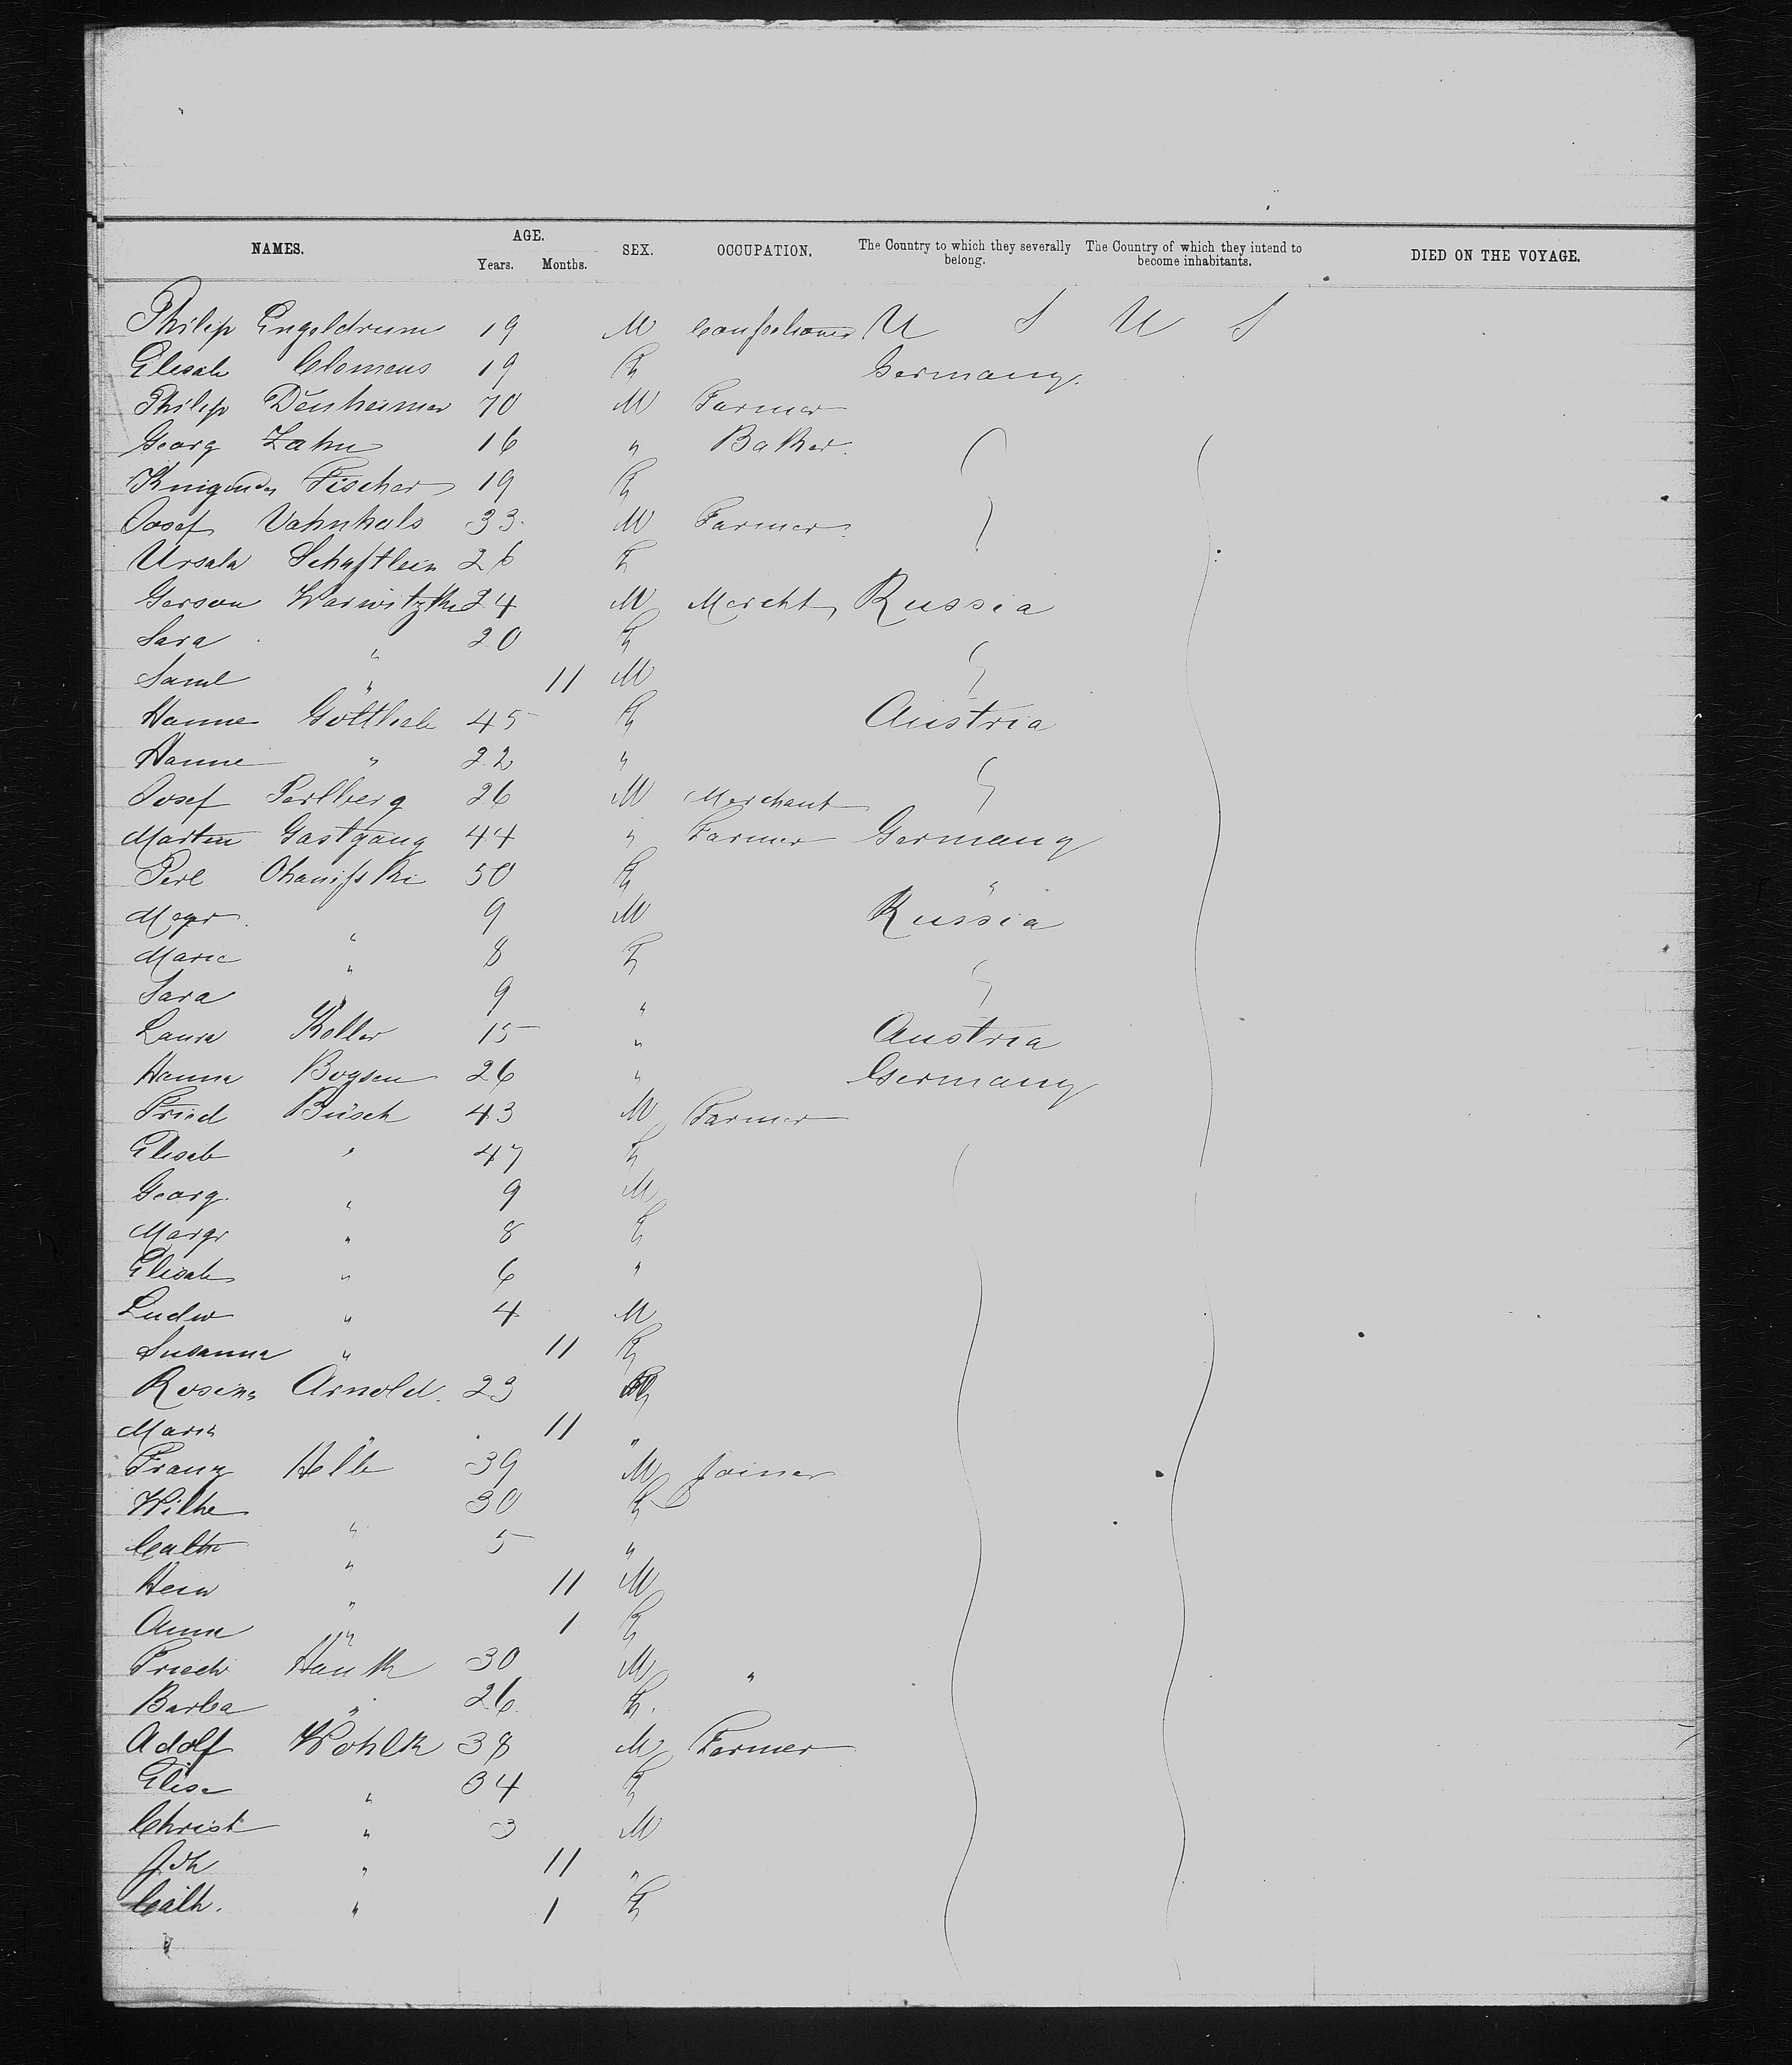 NAMES. AGE. Years. Months. SEX. OCCUPATION. The Country to which they severally belong. The Country of which they intend to become inhabitants. DIED ON THE VOYAGE.
Philip Engeldrum 19 M Confectioner U S U S
Elisab Clemens 19 F Germany.
Philip Denheimer 70 M Farmer
Georg Zahn 16 " Baker.
Fischer 19 F
Josef Vahnhals 33 M Farmer
Ursula Schaftlein 26 F
Gerson 24 M Mercht, Russia
Sara " 20 F
Saml " 11 M
Hanne Gottlieb 45 F Austria
Hanne " 22 "
Josef Perlberg 26 M Merchant
Martin Gastgang 44 " Farmer Germany
Perl 50 F "
Meyer " 9 M Russia
Marie " 8 F
Sara " 9 "
Laura Koller 15 " Austria
Hanna Boysen 26 " Germany
Fried Büsch 43 M Farmer
Elisab " 47 F
Georg. " 9 M
Margr " 8 F
Elisab " 6 "
Ludw " 4 M
Susanna " 11 F
Rosina Arnold. 23 F
Maria " 11 "
Franz Helb 39 M Joiner
Wilhe " 30 F
Cath " 5 "
Hein " 11 M
Anna " 1 F
Friedr Hauth 30 M "
Barba " 26 F.
Adolf Wohlk 38 M Farmer
Elise " 34 F
Christ " 3 M
Joh " 11 "
Cath. " 1 F